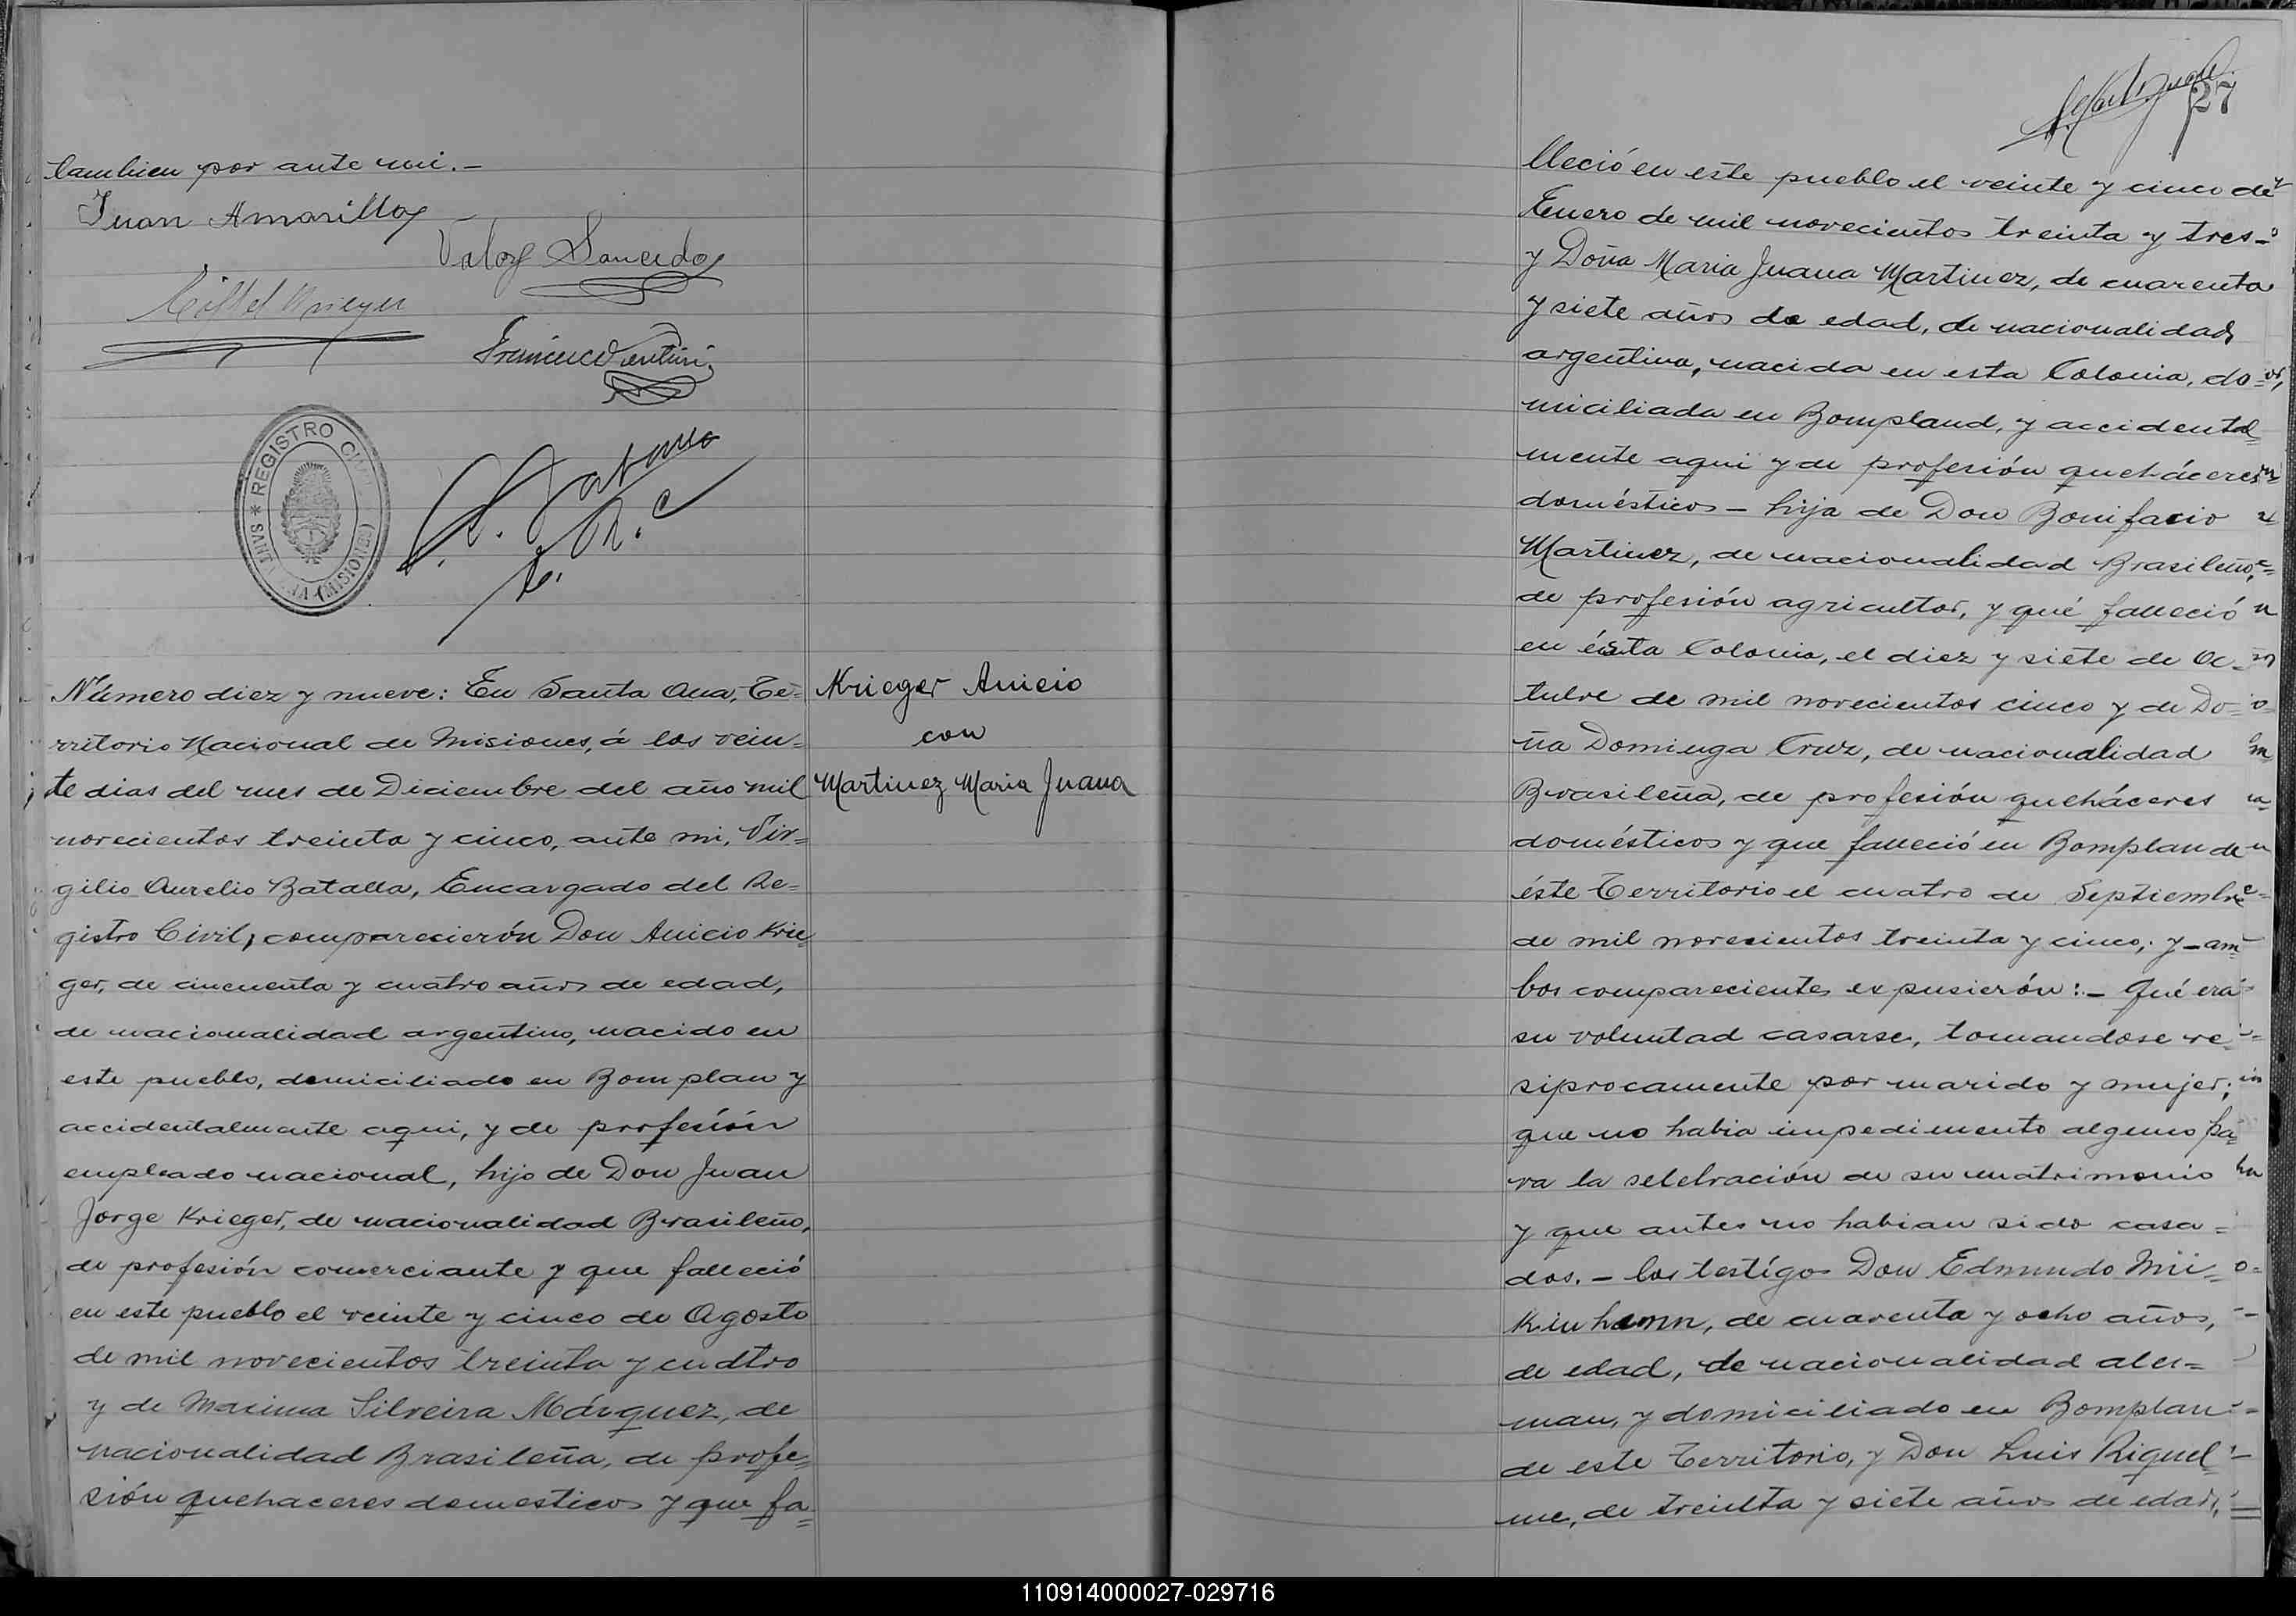 tambien por ante mi.—
Juan Amarilla
Valoy Saucedo
Francisco Venturi
REGISTRO CIVIL
SANTA ANA (MISIONES)
Número diez y nueve: En Santa Ana, Te=
rritorio Nacional de Misiones, á los vein=
te dias del mes de Diciembre del año mil
novecientos treinta y cinco, ante mi, Vir=
gilio Aurelio Batalla, Encargado del Re=
gistro Civil, comparecierón Don Anicio Krie=
ger, de cincuenta y cuatro años de edad,
de nacionalidad argentino, nacido en
este pueblo, domiciliado en Bomplan y
accidentalmente aqui, y de profesión
empleado nacional, hijo de Don Juan
Jorge Krieger, de nacionalidad Brasileño,
de profesión comerciante y que falleció
en este pueblo el veinte y cinco de Agosto
de mil novecientos treinta y cuatro
y de Maxima Silveira Márquez, de
nacionalidad Brasileña, de profe=
sión quehaceres domesticos y que fa=
Krieger Anicio
con
Martinez Maria Juana
27
lleció en este pueblo el veinte y cinco de
Enero de mil novecientos treinta y tres—
y Doña Maria Juana Martinez, de cuarenta
y siete años de edad, de nacionalidad
argentina, nacida en esta Colonia, do=
miciliada en Bompland, y accidental=
mente aqui y de profesión queháceres
domésticos — hija de Don Bonifacio
Martinez, de nacionalidad Brasileño,
de profesión agricultor, y qué falleció
en ésta Colonia, el diez y siete de Oc=
tubre de mil novecientos cinco y de Do=
ña Dominga Cruz, de nacionalidad
Brasileña, de profesión queháceres
domésticos y que falleció en Bomplan de
éste Territorio el cuatro de Septiembre
de mil novecientos treinta y cinco; y—am=
bos comparecientes expusierón:— Qué era
su voluntad casarse, tomandose re=
siprocamente por marido y mujer;
que no habia impedimento alguno pa=
ra la selebración de su matrimonio
y que antes no habian sido casa=
dos. — los testígos Don Edmundo Mii=
Kinhamn, de cuarenta y ocho años,
de edad, de nacionalidad ale=
man, y domiciliado en Bomplan
de este Territorio, y Don Luis Riquel=
me, de treinta y siete años de edad,
110914000027-029716